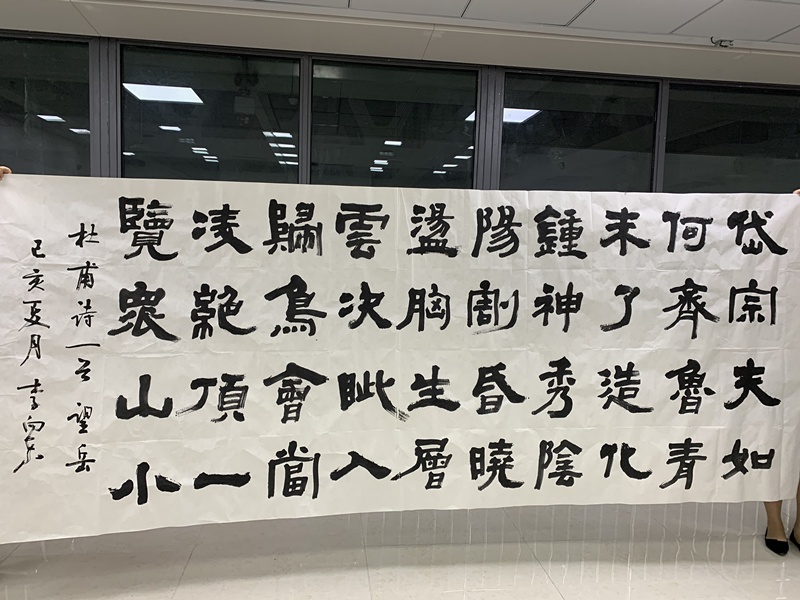 岱宗夫如
何齊魯青
未了造化
鍾神秀陰
陽割昏曉
盪胸生層
雲决眦入
歸鳥會當
凌絕頂一
覽眾山小
杜甫诗一首望岳
己亥夏月李向东